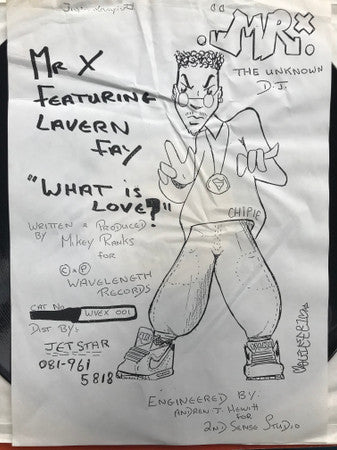 MR X
THE UNKNOWN
D.J.
MR X
FEATURING
LAVERN
FAY
"WHAT IS
LOVE?"
WRITTEN & PRODUCED
BY MIKEY RANKS
FOR
© & ℗
WAVELENGTH
RECORDS
CAT No.
WVEX 001
DIST BY:
JETSTAR
081-961
5818
CHIPIE
ENGINEERED BY.
ANDREW T. HEWITT
FOR
2ND SENSE STUDIO